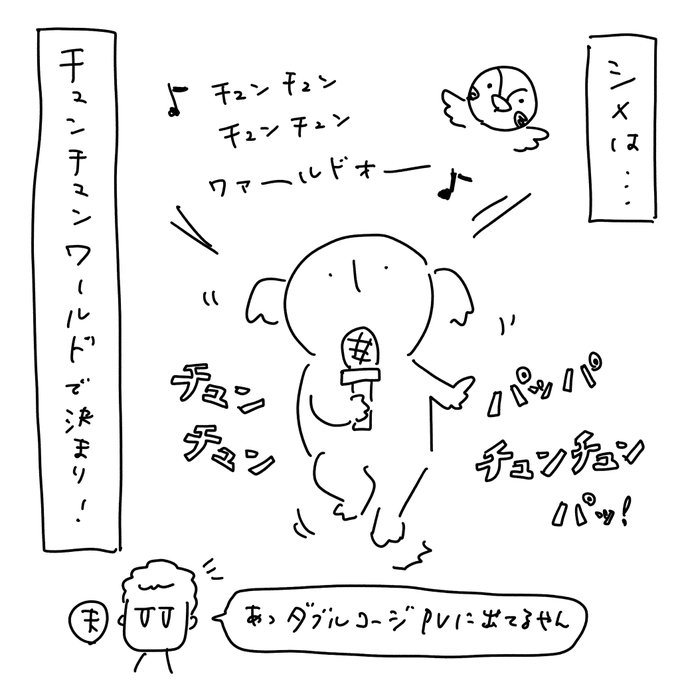 シメは...
♪チュンチュン
チュンチュン
ワァールドォー♪
チュン
チュン
パッパ
チュンチュン
パッ!
チュンチュンワールドで決まり!
ま
あっダブルコージPVに出てるやん